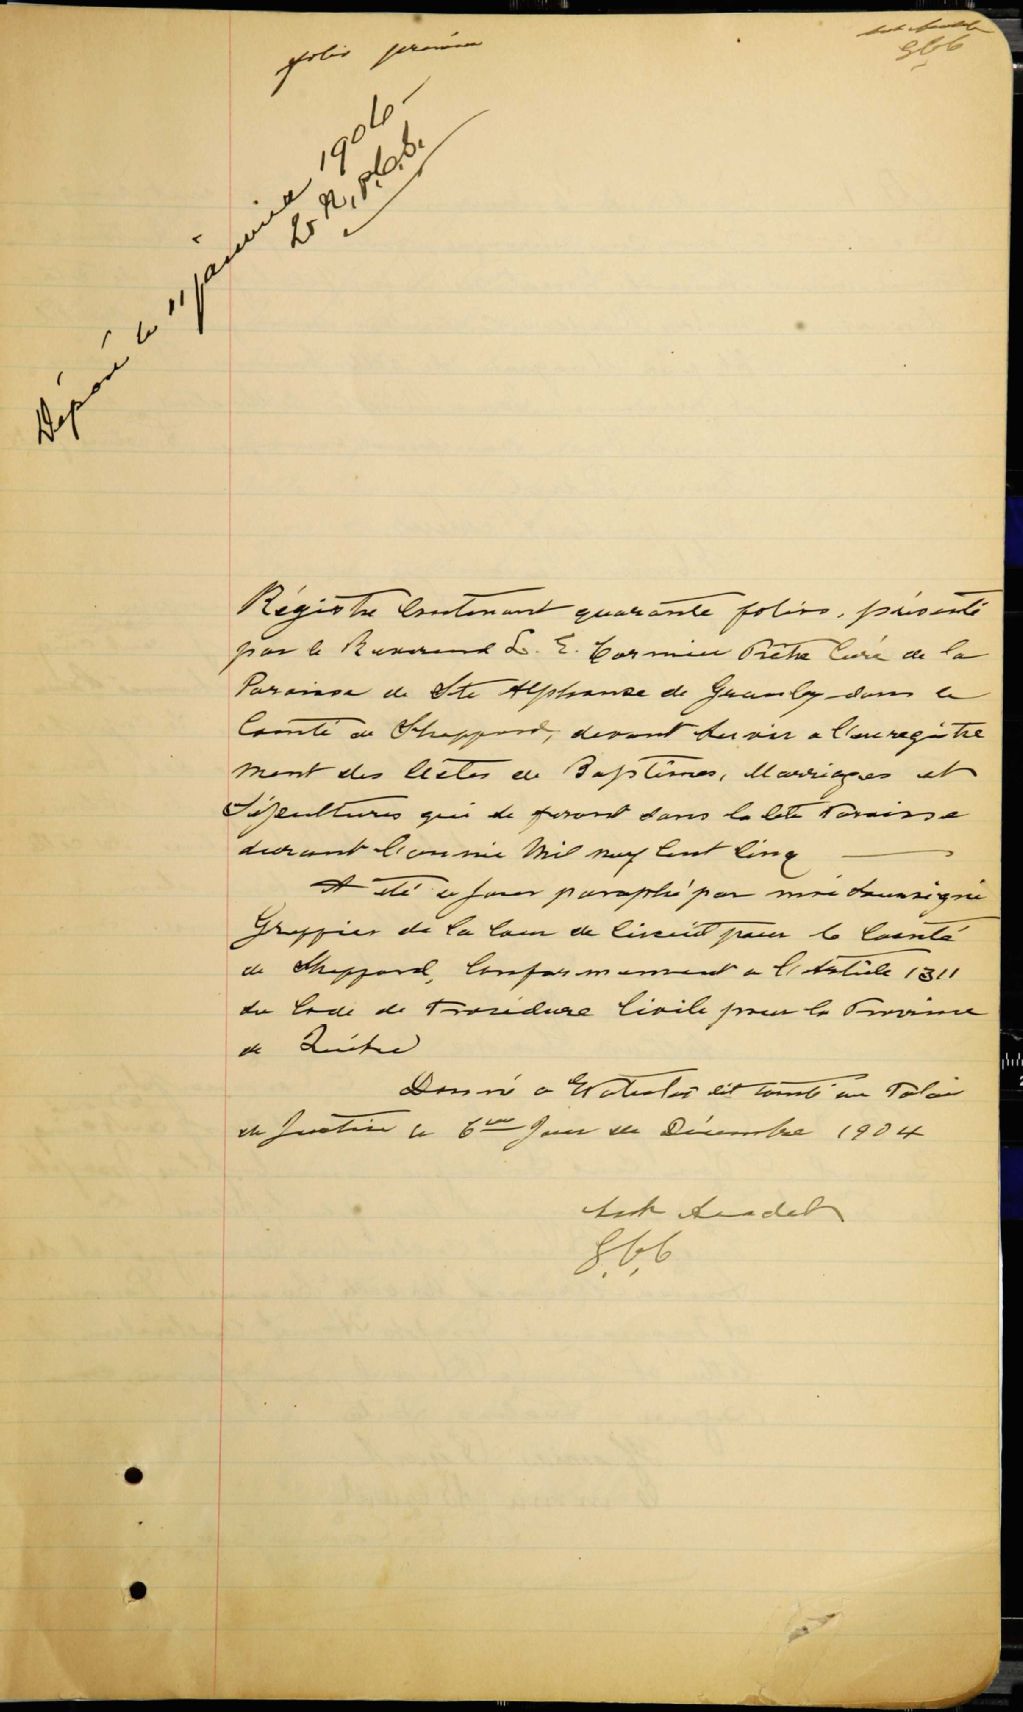 folio premier
G.C.C
Déposé le 11 janvier 1906
P.C.S.
Régistre Contenant quarante folios, présenté
par le Reverend L. E. Cormier Prêtre Curé de la
Paroisse de Ste Alphonse de Granby dans le
Comté de Shefford, devant servir a l'enregistre
ment des Actes de Baptêmes, Marriages et
Sépultures qui se feront dans la dite Paroisse
durant l'année Mil neuf Cent Cinq
A été ce jour paraphé par moi Soussigné
Greffier de la Cour de Circuit pour le Comté
de Shefford, Conformement a l'Article 1311
du Code de Procédure Civile pour la Province
de Québec
Donné a Waterloo dit Comté au Palais
de Justice le 6me Jour de Décembre 1904
G.C.C